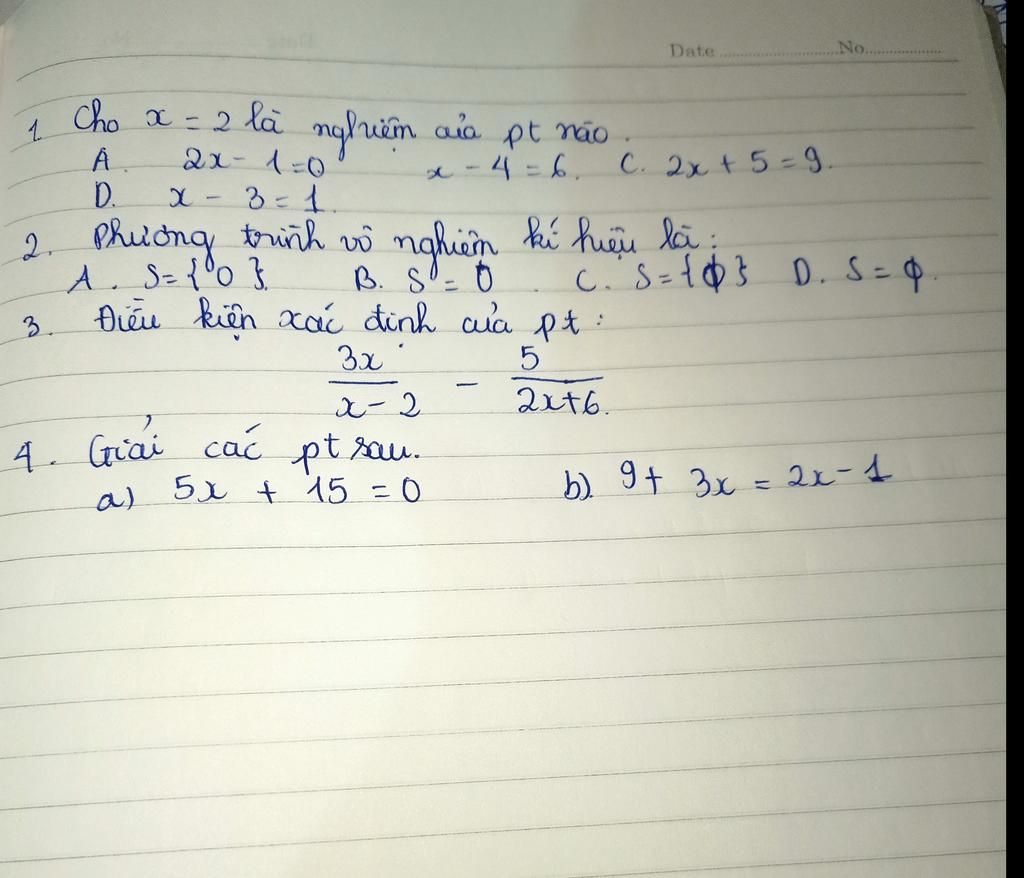 Date ........................ No.................
1 Cho x = 2 là nghiệm của pt nào.
A. 2x - 1 = 0 x - 4 = 6. C. 2x + 5 = 9.
D. x - 3 = 1.
2. Phương trình vô nghiệm kí hiệu là:
A. S = {0}. B. S = 0. C. S = {ϕ} D. S = ϕ.
3. Điều kiện xác định của pt:
3x/(x - 2) - 5/(2x + 6).
4. Giải các pt sau.
a) 5x + 15 = 0 b). 9 + 3x = 2x - 1